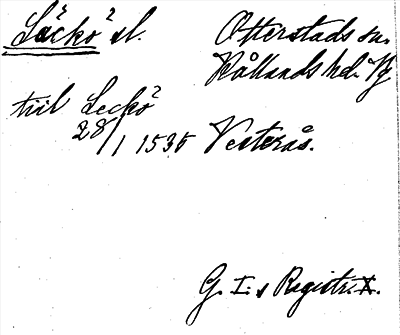 Läckö sl. Otterstads sn.
Kållands hd. Vg
tiil Leckö
28/1 1535 Vesterås.
G. I:s Registr. X.